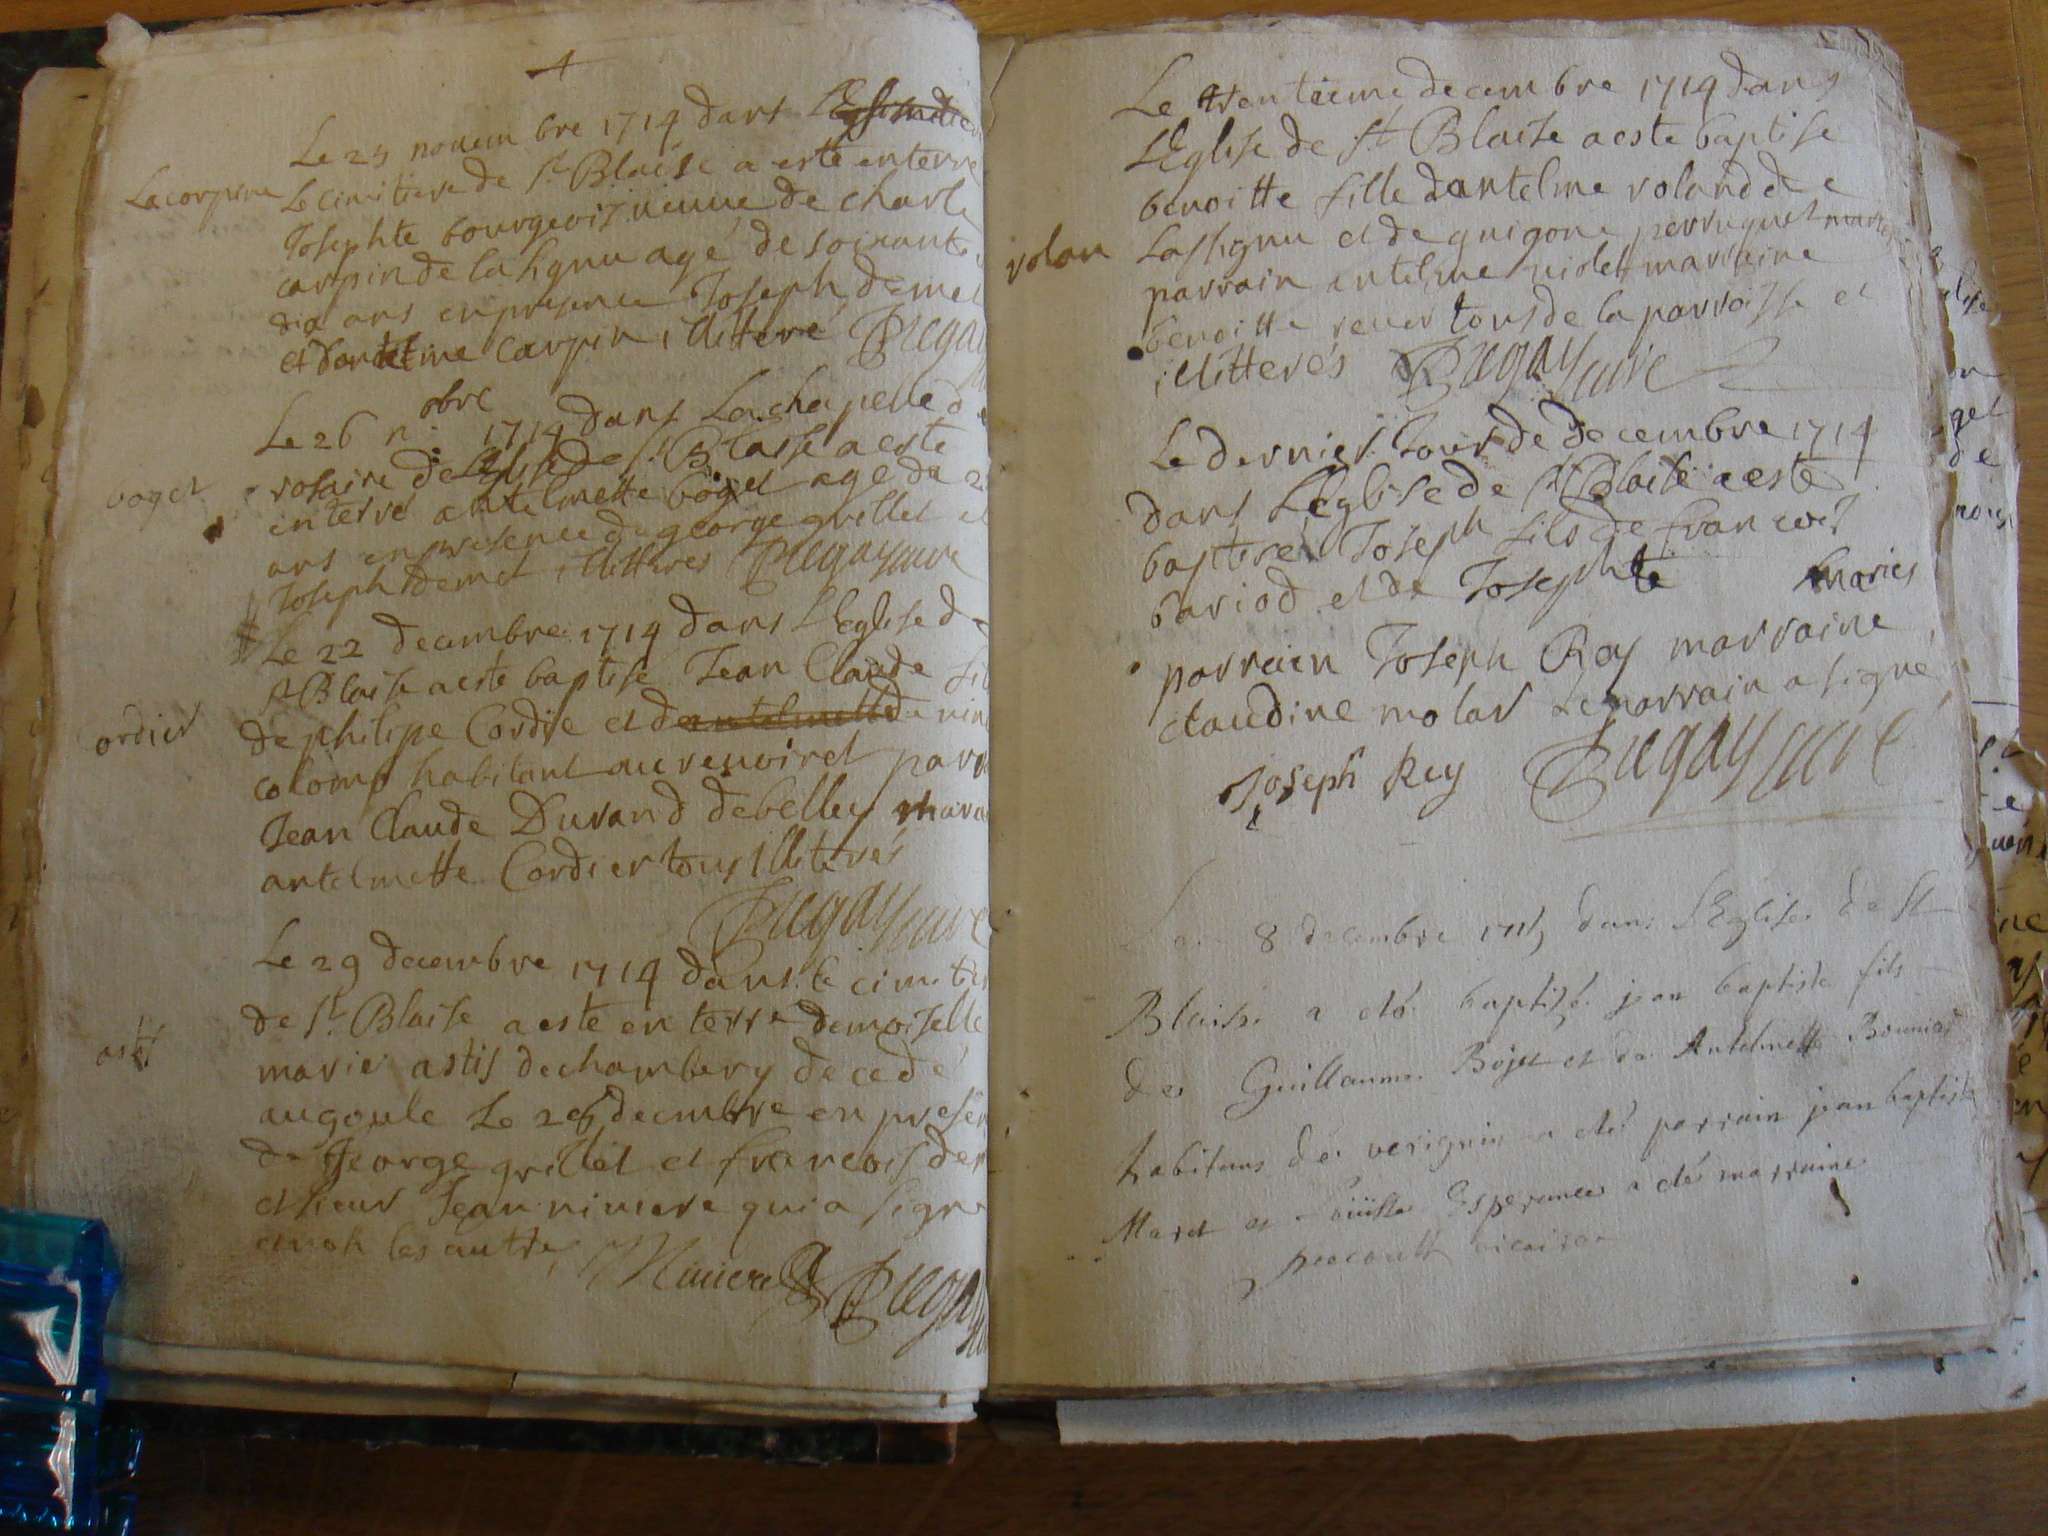 Le 25 nouembre 1714 dans
Lacorpine
Le cimitiere de St Blaise a este enterre
Josephte bourgeois ueuue de charle
carpin de lassignu agé de soixante
dix ans en presence Joseph demet
et dantelme carpin illiteré Bregay
Le 26 n.obre 1714 dans La chapelle de
rosaire de Leglise de St Blaise a este
boget
enterré antelmette boget age de 2
ans en presence de george grillet et
Joseph demet illitteres Bregay curé
Le 22 decembre 1714 dans L'eglise de
St Blaise a este baptise Jean Claude fil
ordier
de philipe Cordie et de antelmette de
colomb habitant au reuoiret par
Jean Claude Durand de belley mara
antelmette Cordier tous illiterés
Bregay curé
Le 29 decembre 1714 dans le cimitie
de St Blaise a este enterré demoiselle
asti
marie astis de chambery decedé
au goule Le 28 decembre en presen
de george grillet et francois de
et sieur Jean niuiere qui a signe
les autre
Niuiere Bregay
Le trentieme decembre 1714 dans
L'Eglise de St Blaise a este baptise
benoitte fille dantelme roland de
rolan
Lassignu et de guigone perruquet maries
parrain antelme uiolet marraine
benoitte reuer tous de la parroisse et
illitterés Bregay curé
Le dernier Jour de decembre 1714
dans L'eglise de St Blaise a este
baptisé Joseph fils de francois
bariod et de Josephte maries
parrain Joseph Rey marraine
claudine molar Le parrain a signe
Joseph Rey Bregay curé
8 decembre 1715 dans l'Eglise de St
Blaise a eté baptizé jean baptiste fils
de Guillaume Bojet et de Antelmette Bouniod
habitans de verignin a eté parrain jean baptiste
Maret et Louise Esperance a eté marraine
vicaire